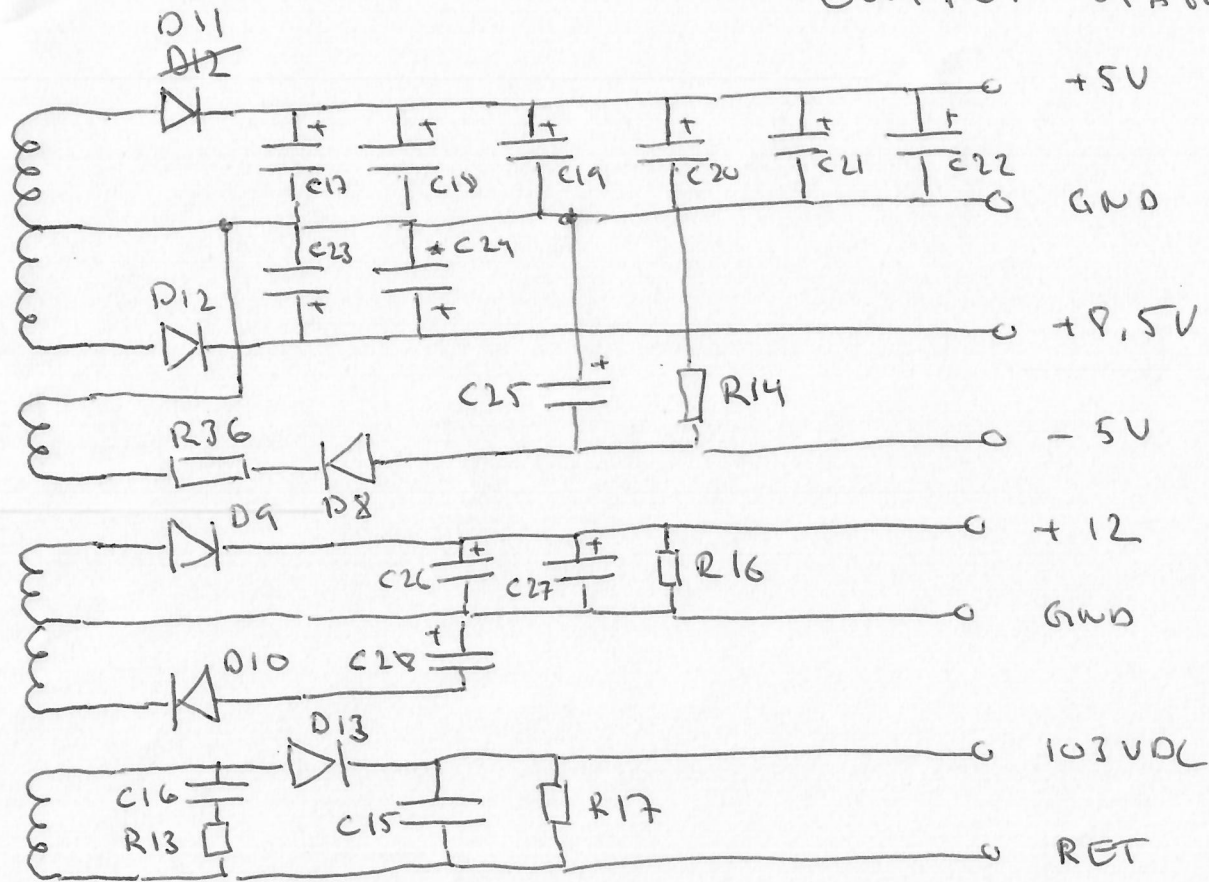 D11
D12
+5V
+ + + + + +
C17 C18 C19 C20 C21 C22
GND
C23 + C24
D12
+ +
+8,5V
+
C25 R14
R36
- 5V
D8
D9
+ 12
+ +
C26 C27 R16
GND
+
D10 C28
D13
103VDC
C16
R13 C15 R17
RET